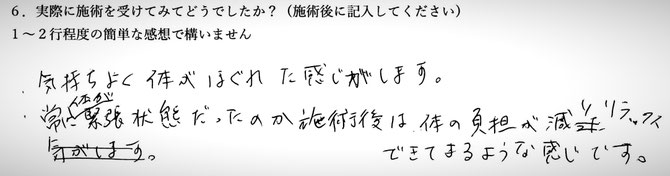 ６．実際に施術を受けてみてどうでしたか？（施術後に記入してください）
１～２行程度の簡単な感想で構いません
・気持ちよく体がほぐれた感じがします。
・常に体が緊張状態だったのか施術後は、体の負担が減りリラックス
できてまるような感じです。
気がします。